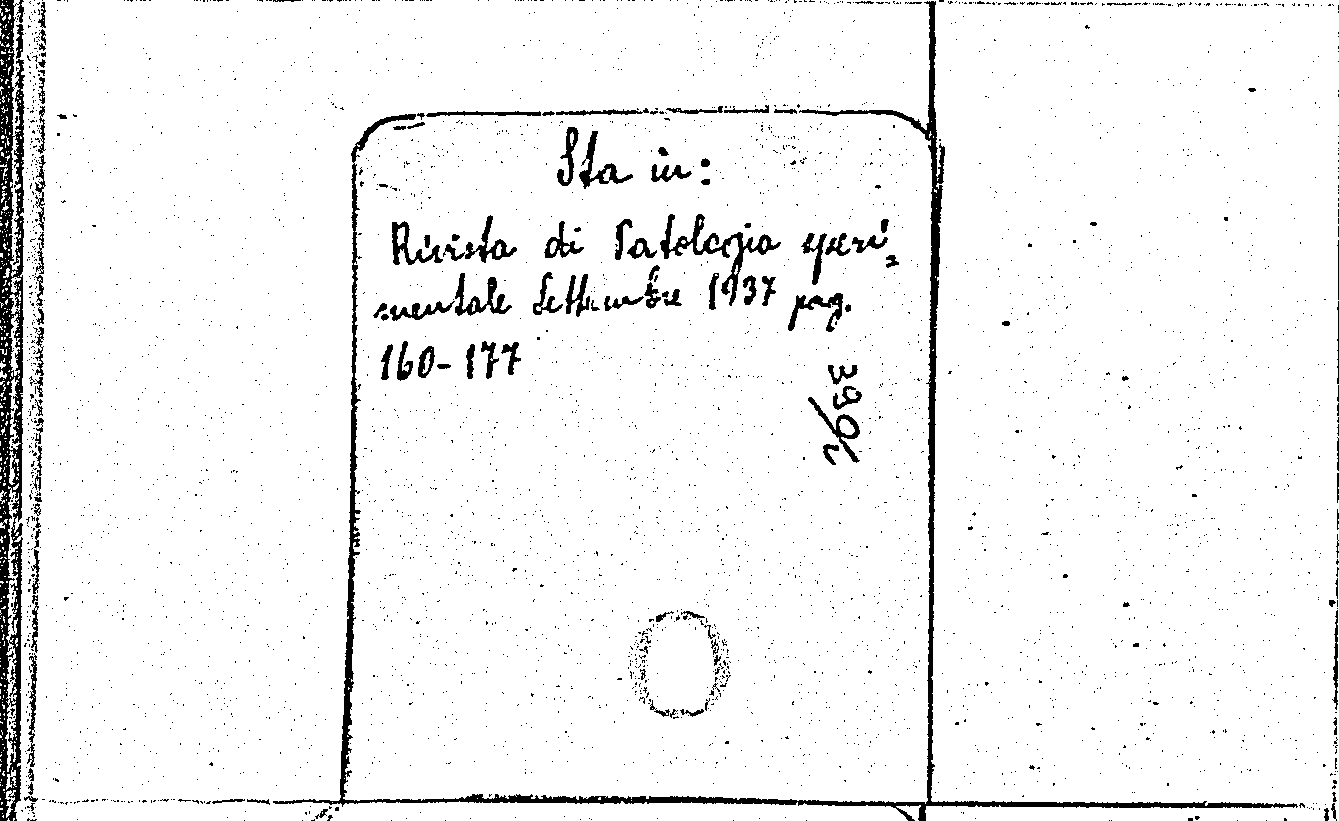 Sta in:
Rivista di Patologia speri=
mentale Settembre 1937 pag.
160-177